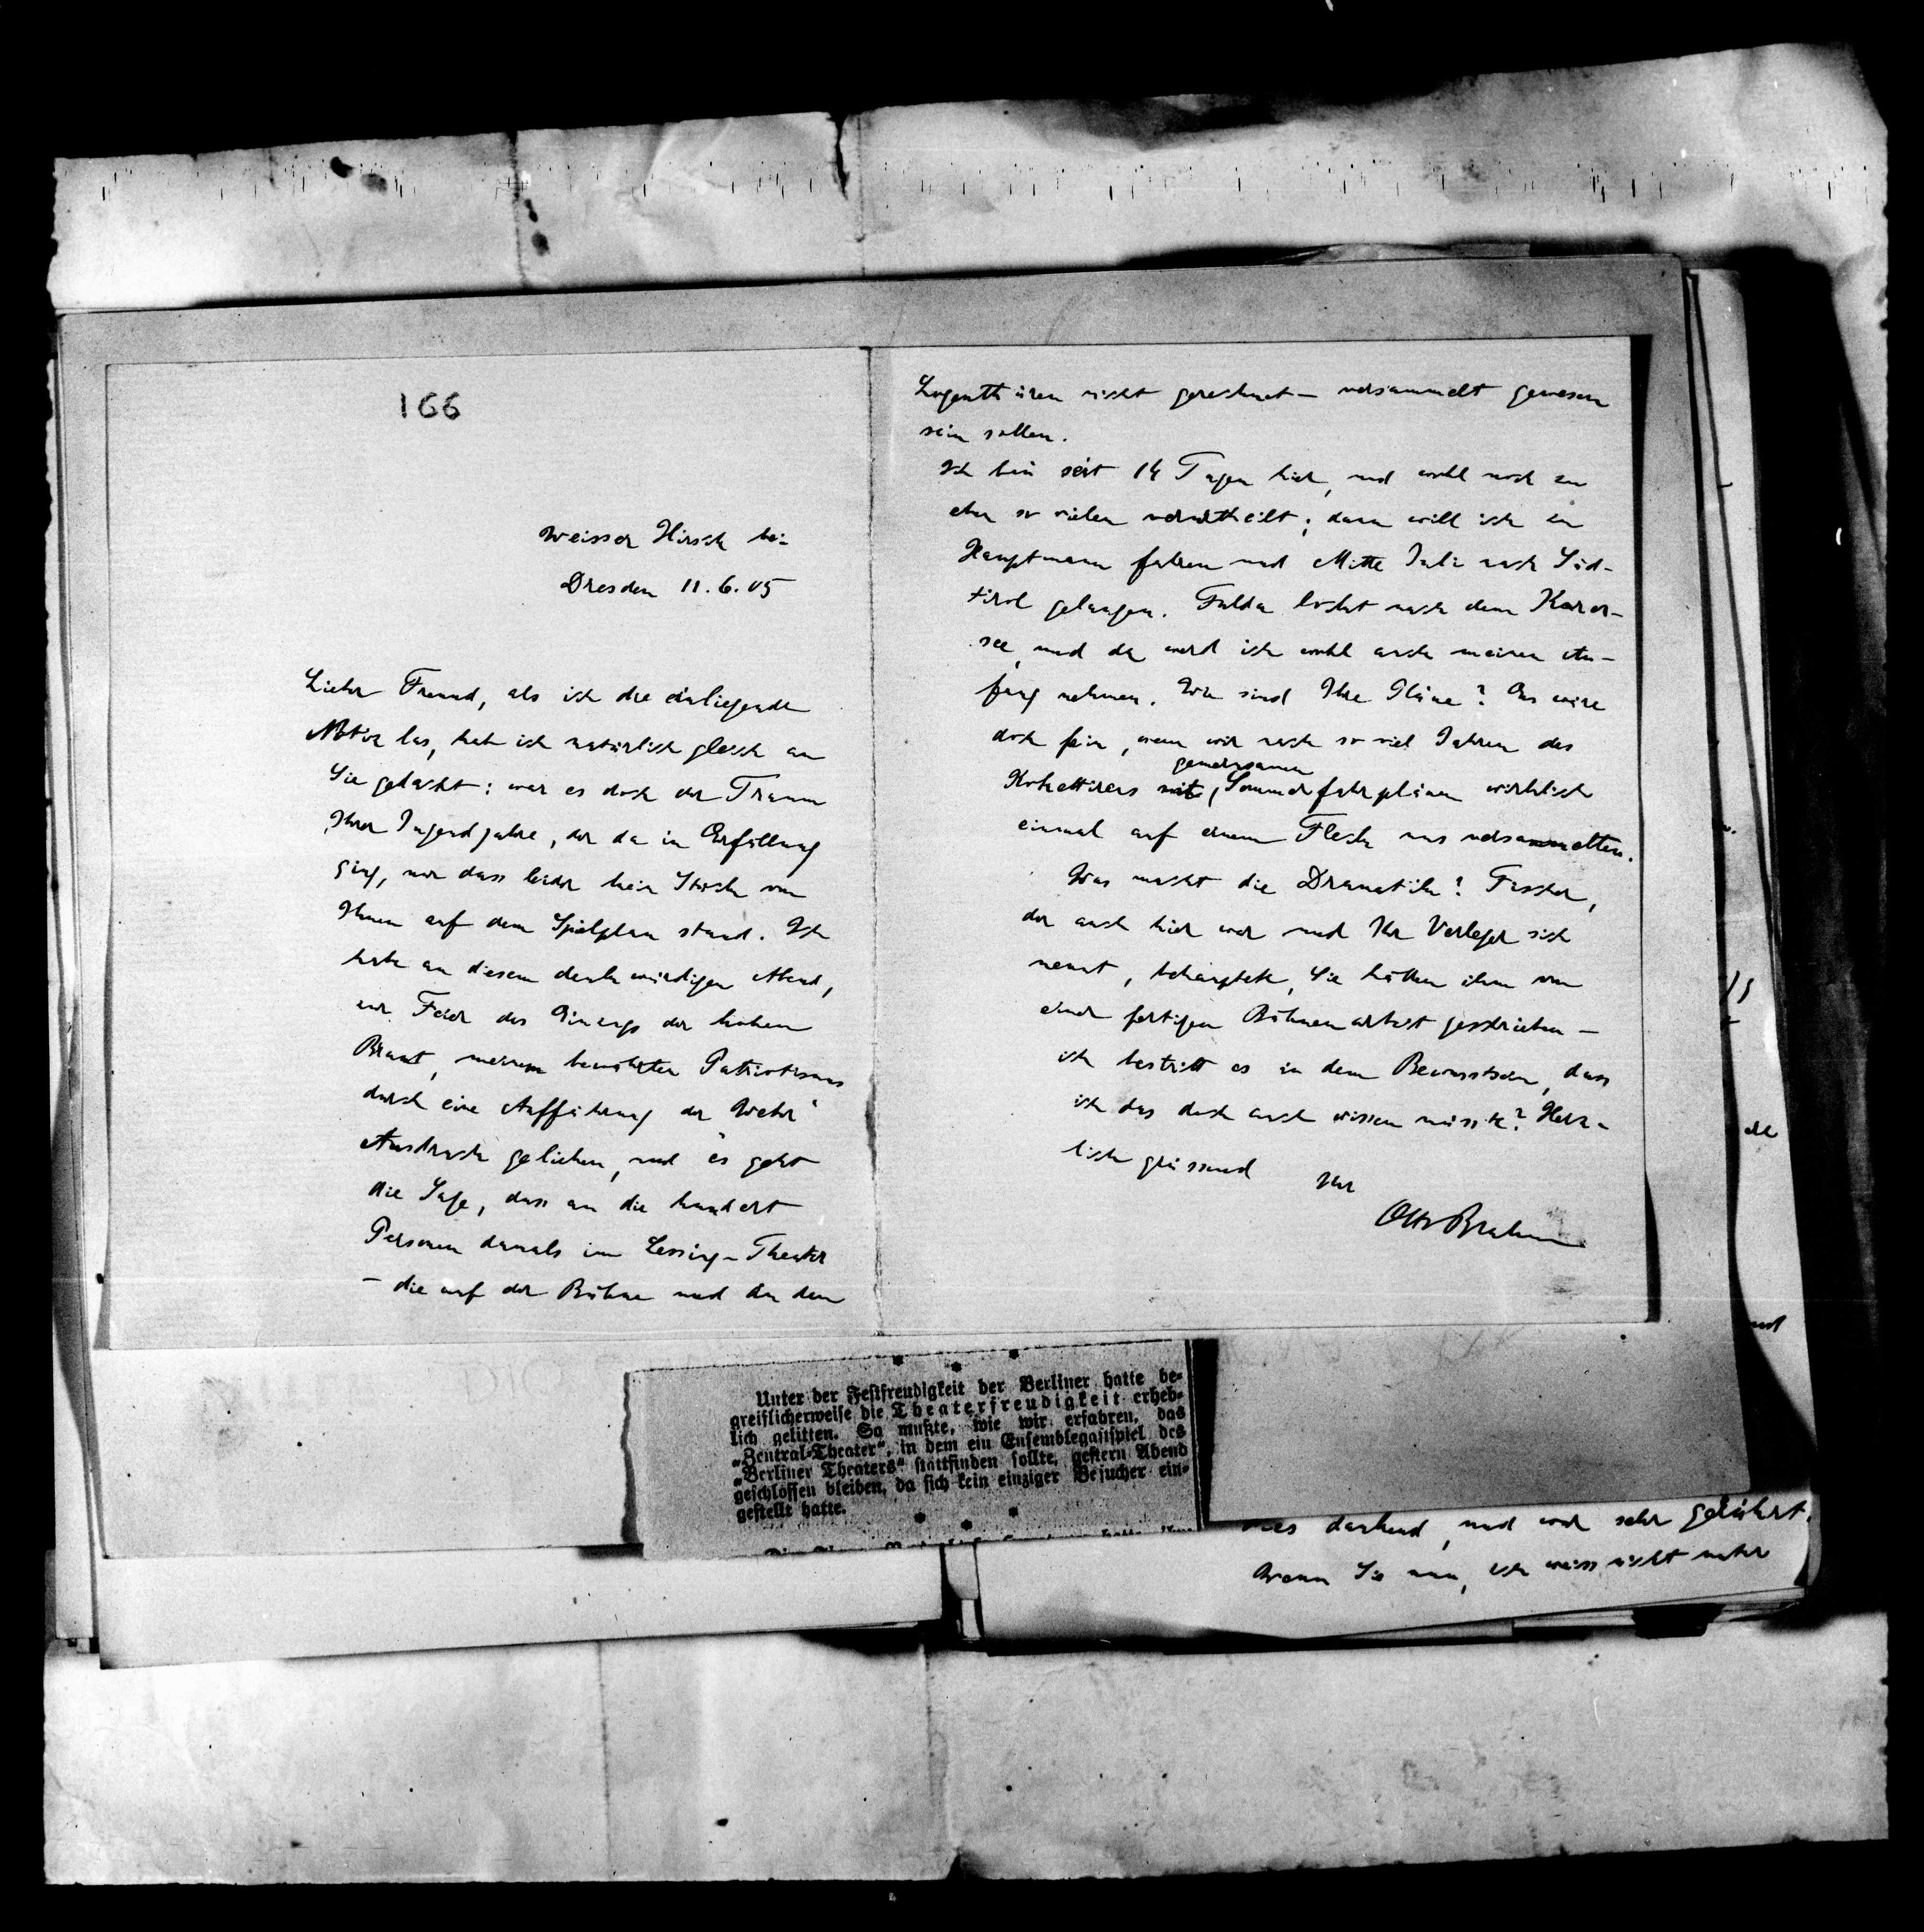 166
Weisser Hirsch bei
Dresden 11.6.05
Lieber Freund, als ich die einliegende
Notiz las, hab ich natürlich gleich an
Sie gedacht: war es doch der Traum
Ihrer Jugendjahre, der da in Erfüllung
ging, nur dass leider kein Stück von
Ihnen auf dem Spielplan stand. Ich
habe an diesem denkwürdigen Abend,
zur Feier des Einzugs der hohen
Braut, meinem bewährten Patriotismus
durch eine Aufführung der Weber
Ausdruck geliehen, und es geht
die Sage, dass an die hundert
Personen damals im Lessing-Theater
– die auf der Bühne und an den
Logenthüren nicht gerechnet – versammelt gewesen
sein sollen.
Ich bin seit 14 Tagen hier, und wohl noch zu
eben so vielen verurtheilt; dann will ich zu
Hauptmann fahren und Mitte Juli nach Süd-
tirol gelangen. Fulda lockt nach dem Karer-
see, und da werd ich wohl auch meinen An-
fang nehmen. Wie sind Ihre Pläne? Es wäre
doch fein, wenn wir nach so viel Jahren des
gemeinsamen
Kokettirens mit Sommerfahrplänen wirklich
einmal auf einem Fleck uns versammelten.
Was macht die Dramatik? Fischer,
der auch hier war und Ihr Verleger sich
nennt, behauptete, Sie hätten ihm von
einer fertigen Bühnenarbeit geschrieben –
ich bestritt es in dem Bewusstsein, dass
ich das doch auch wissen müsste? Herz-
lich grüssend
Ihr
Otto Brahm
Unter der Festfreudigkeit der Berliner hatte be-
greiflicherweise die Theaterfreudigkeit erheb-
lich gelitten. So mußte, wie wir erfahren, das
„Zentral-Theater“, in dem ein Ensemblegastspiel des
„Berliner Theaters“ stattfinden sollte, gestern Abend
geschlossen bleiben, da sich kein einziger Besucher ein-
gestellt hatte.
dankend, und war sehr gerührt.
Wenn Sie nun, ich weiss nicht unter